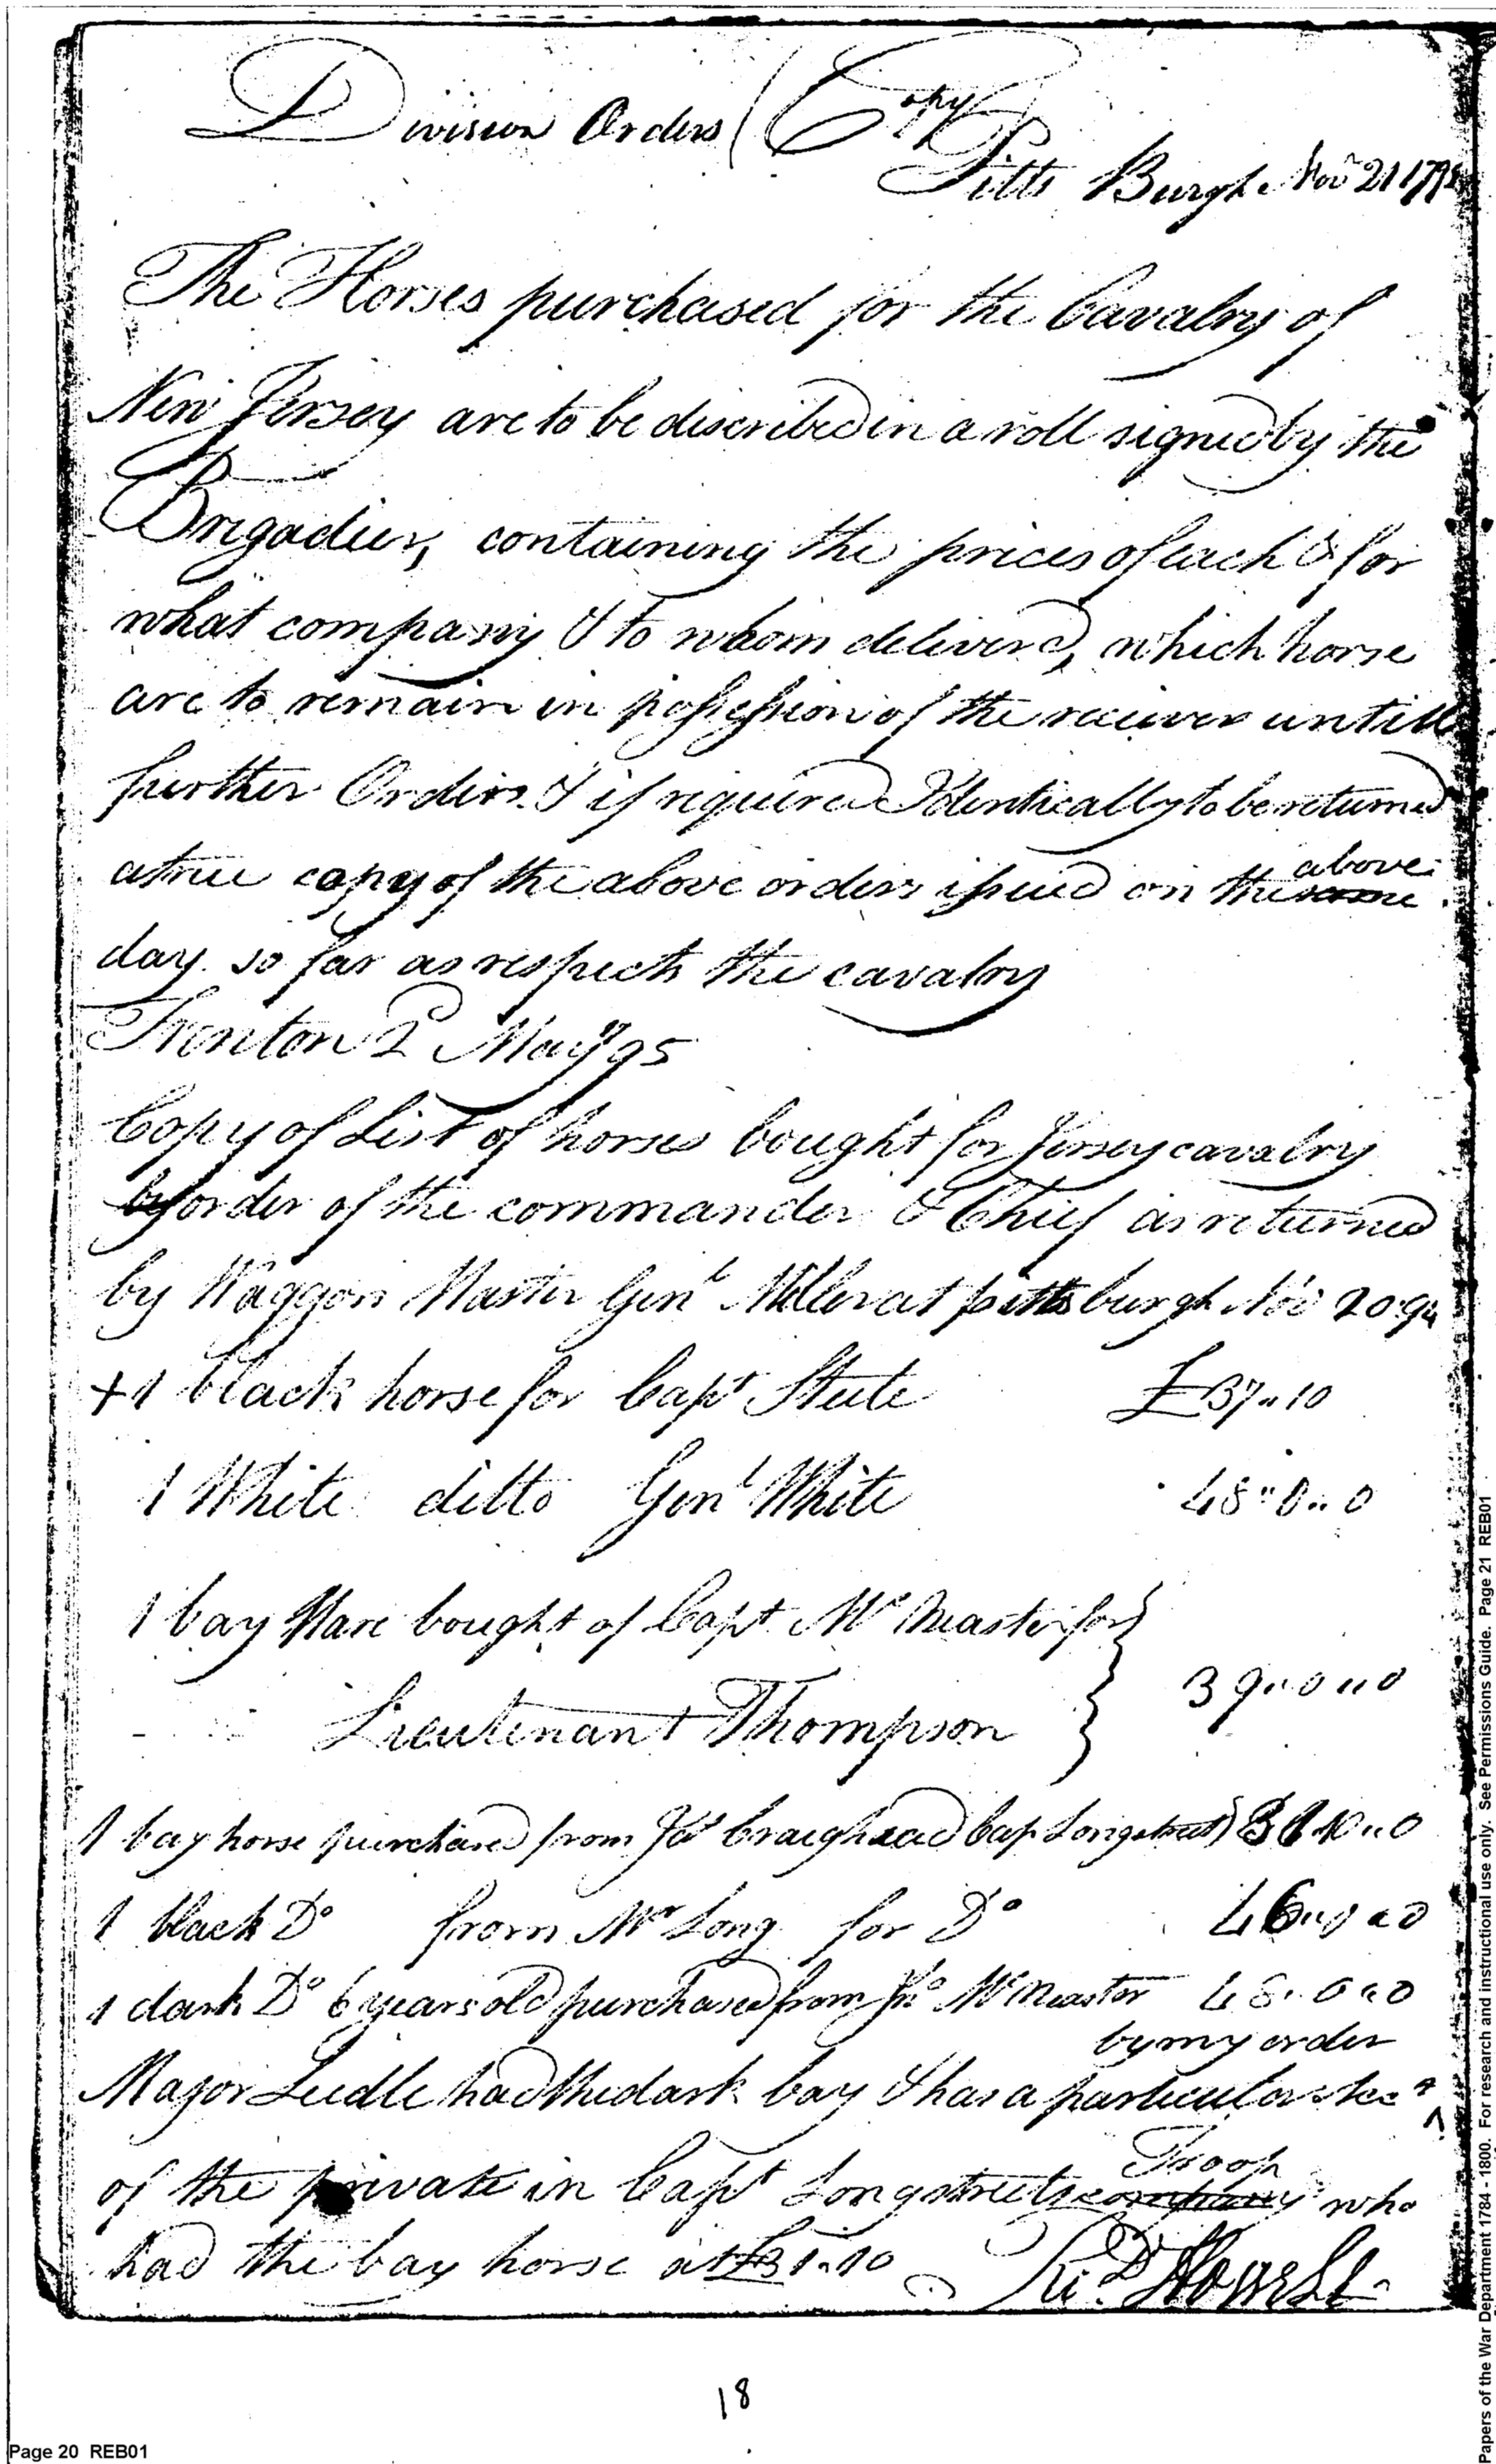 Division Orders (Copy
Pitts Burgh Nov 21 179
The Horses purchased for the Cavalry of
New Jersey are to be discribed in a roll signed by the
Brigadier, containing the prices of each & for
what company & to whom deliverd, which horse
are to remain in possession of the reciever untill
further Orders. & if required Identically to be returned
a true copy of the above orders issued on the same above
day so far as respects the cavalry
Trenton 2d May 95
Copy of List of horses bought for Jersey cavalry
by order of the commander & Chief as returned
by Waggon Master Genl Miller at pittsburgh Nov 20 94
+ 1 black horse for Capt Steele £37 " 10
1 White ditto Genl White 48 " 0 " 0
1 bay Mare bought of Capt Mc Master for
Lieutenant Thompson 39 " 0 " 0
1 bay horse purchased from Jas Craighead Cap Longstreet 31 10 " 0
1 black Do from Mr Long for Do 46 " 0 " 0
1 dark Do 6 years old purchased from Jno Mc Master 48 " 0 " 0
by my order
Major Leedle had the dark bay & has a particular rect ^
of the private in Capt Longstreets company Troop who
had the bay horse at £31 " 10 Rid Howell
18
Page 20 REB01
Papers of the War Department 1784 - 1800. For research and instructional use only. See Permissions Guide. Page 21 REB01